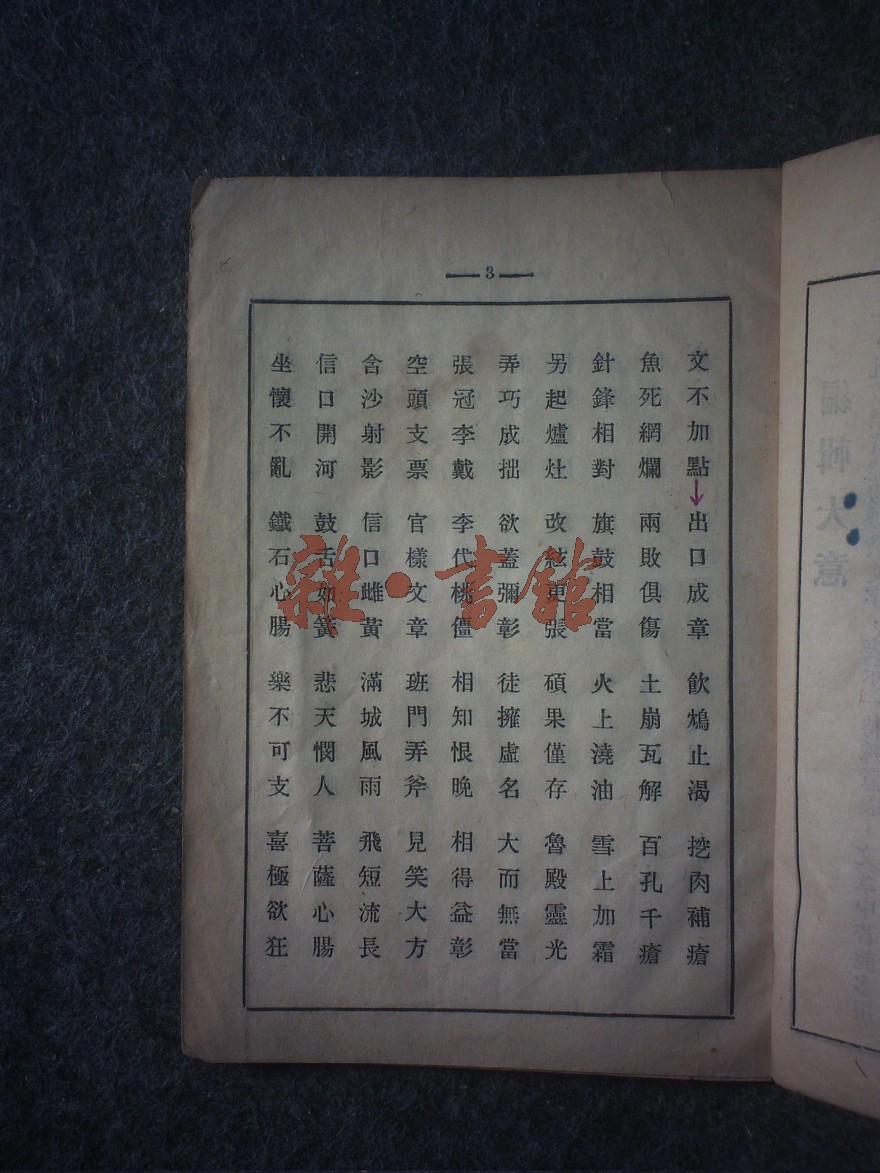 3
文不加點 出口成章 飲鴆止渴 挖肉補瘡
魚死網爛 兩敗俱傷 土崩瓦解 百孔千瘡
針鋒相對 旗鼓相當 火上澆油 雪上加霜
另起爐灶 改絃更張 碩果僅存 魯殿靈光
弄巧成拙 欲蓋彌彰 徒擁虛名 大而無當
張冠李戴 李代桃僵 相知恨晚 相得益彰
空頭支票 官樣文章 班門弄斧 見笑大方
含沙射影 信口雌黃 滿城風雨 飛短流長
信口開河 鼓舌如簧 悲天憫人 菩薩心腸
坐懷不亂 鐵石心腸 樂不可支 喜極欲狂
雜·書館
編輯大意